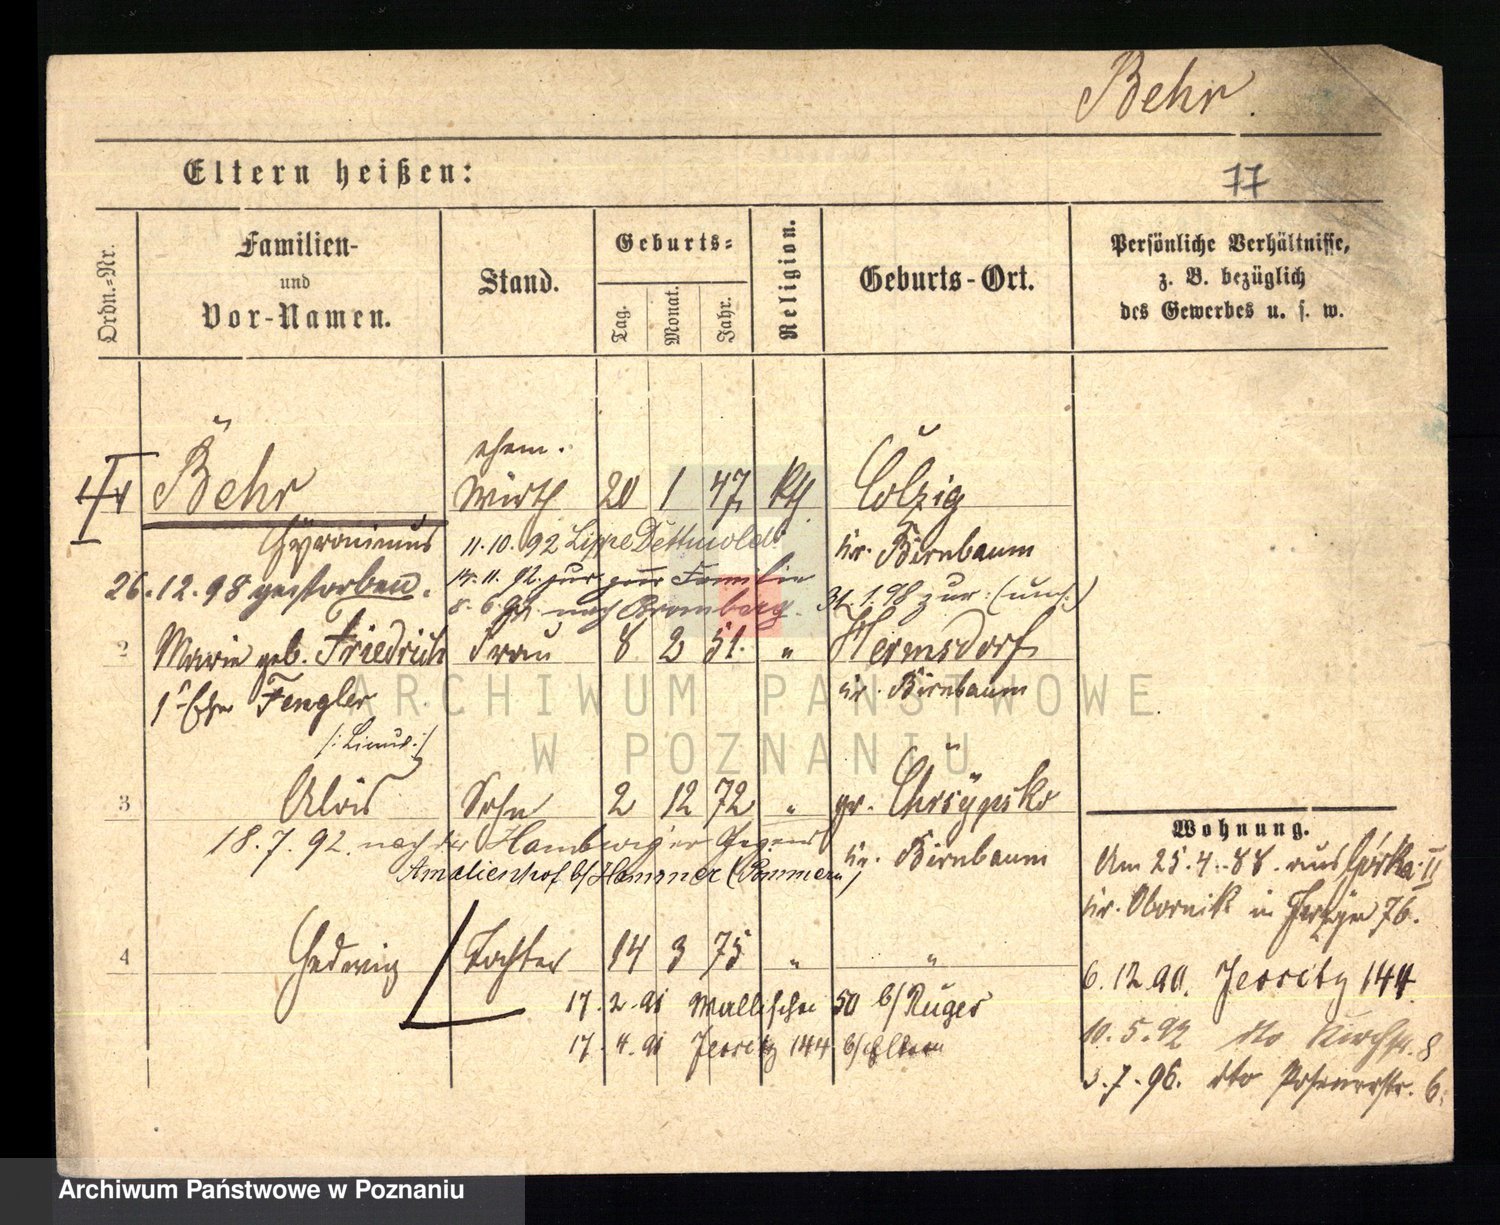 Behr.
Eltern heißen:
77
Ordn.-Nr.
Familien-
und
Vor-Namen.
Stand.
Geburts-
Tag.
Monat.
Jahr.
Religion.
Geburts-Ort.
Persönliche Verhältnisse,
z. B. bezüglich
des Gewerbes u. s. w.
ehem.
Behr Wirth 20 1 47 kth Colzig
Hyronimus 11.10.92 Lippe Dettmold kr. Birnbaum
26.12.98 gestorben. zur Familie
nach Bromberg. 31.1.98 zur.
2 Marie geb. Friedrich Frau 8 2 51. " Hermsdorf
1t Ehe Fengler kr. Birnbaum
3 Alois Sohn 2 12 72 " gr. Chrzypsko
18.7.92. nach der Hamburger Gegend kr. Birnbaum
Amalienhof b/Hammer (Pommern)
4 Hedwig Tochter 14 3 75 " "
17.2.91 Wallischei 50 b/Ruges
17.4.91 Jersitz 144 b/Eltern
Wohnung.
Am 25.4.88. aus Gorka II
kr. Obornik in 76.
6.12.90. Jersitz 144
10.5.92 dto Kirchstr. 8
3.7.96. dto Posenerstr. 6.
ARCHIWUM PAŃSTWOWE
W POZNANIU
Archiwum Państwowe w Poznaniu